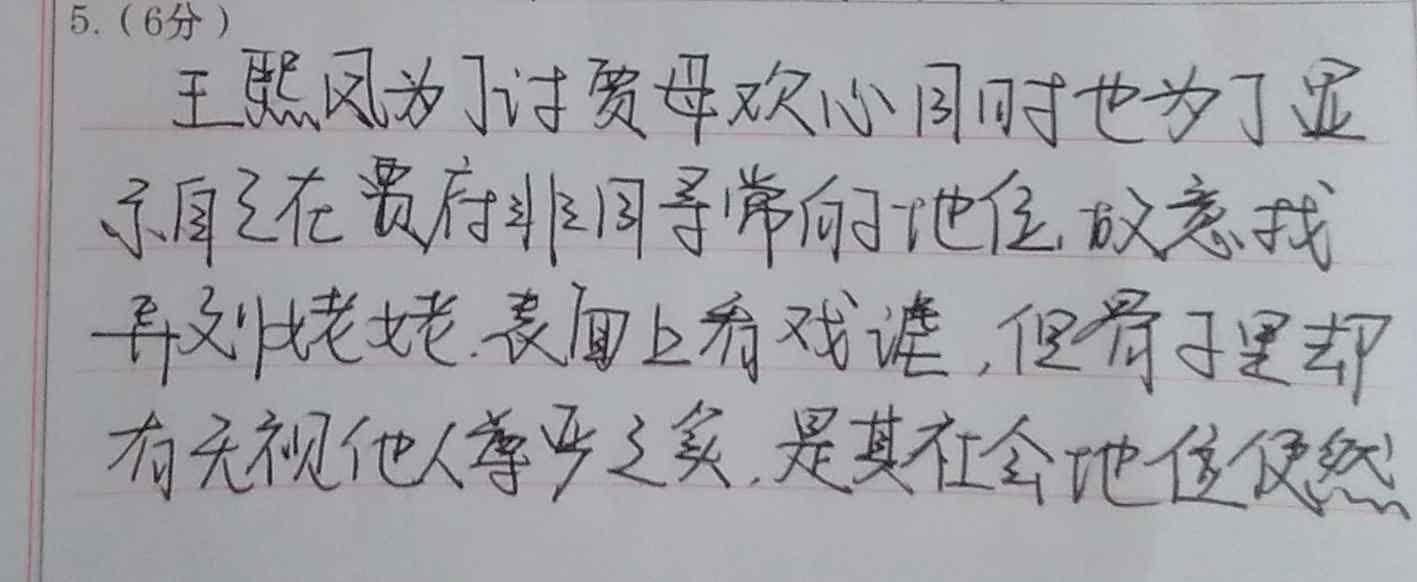 5.(6分)
王熙凤为了讨贾母欢心同时也为了显
示自己在贾府非同寻常的地位,故意找
弄刘姥姥.表面上看戏谑,但骨子里却
有无视他人尊严之实.是其社会地位使然